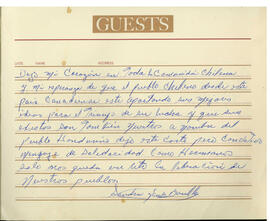 GUESTS
DATE NAME
Dejo mi Corazón en Toda la Comunidad Chilena
y mi esperanza de que el pueblo Chileno desde este
país Canadiense este aportando sus mejores
ideas para el triunfo de su lucha y que sus
exitos son También nuestros a nombre del
pueblo Hondureño dejo este corto pero Conciso
mensaje de Solidaridad Como Hermanos
solo nos queda un reto la liberación de
Nuestros pueblos